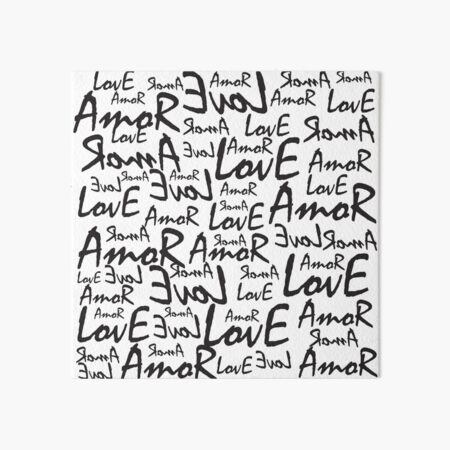 LovE AmoR AmoR LovE AmoR AmoR
AmoR AmoR LovE
LovE LovE AmoR
AmoR LovE LovE AmoR
LovE AmoR LovE AmoR LovE
LovE AmoR AmoR LovE AmoR AmoR
AmoR AmoR LovE AmoR
LovE LovE AmoR AmoR AmoR
AmoR LovE LovE LovE
LovE LovE AmoR LovE AmoR
AmoR AmoR AmoR
LovE AmoR AmoR LovE LovE AmoR